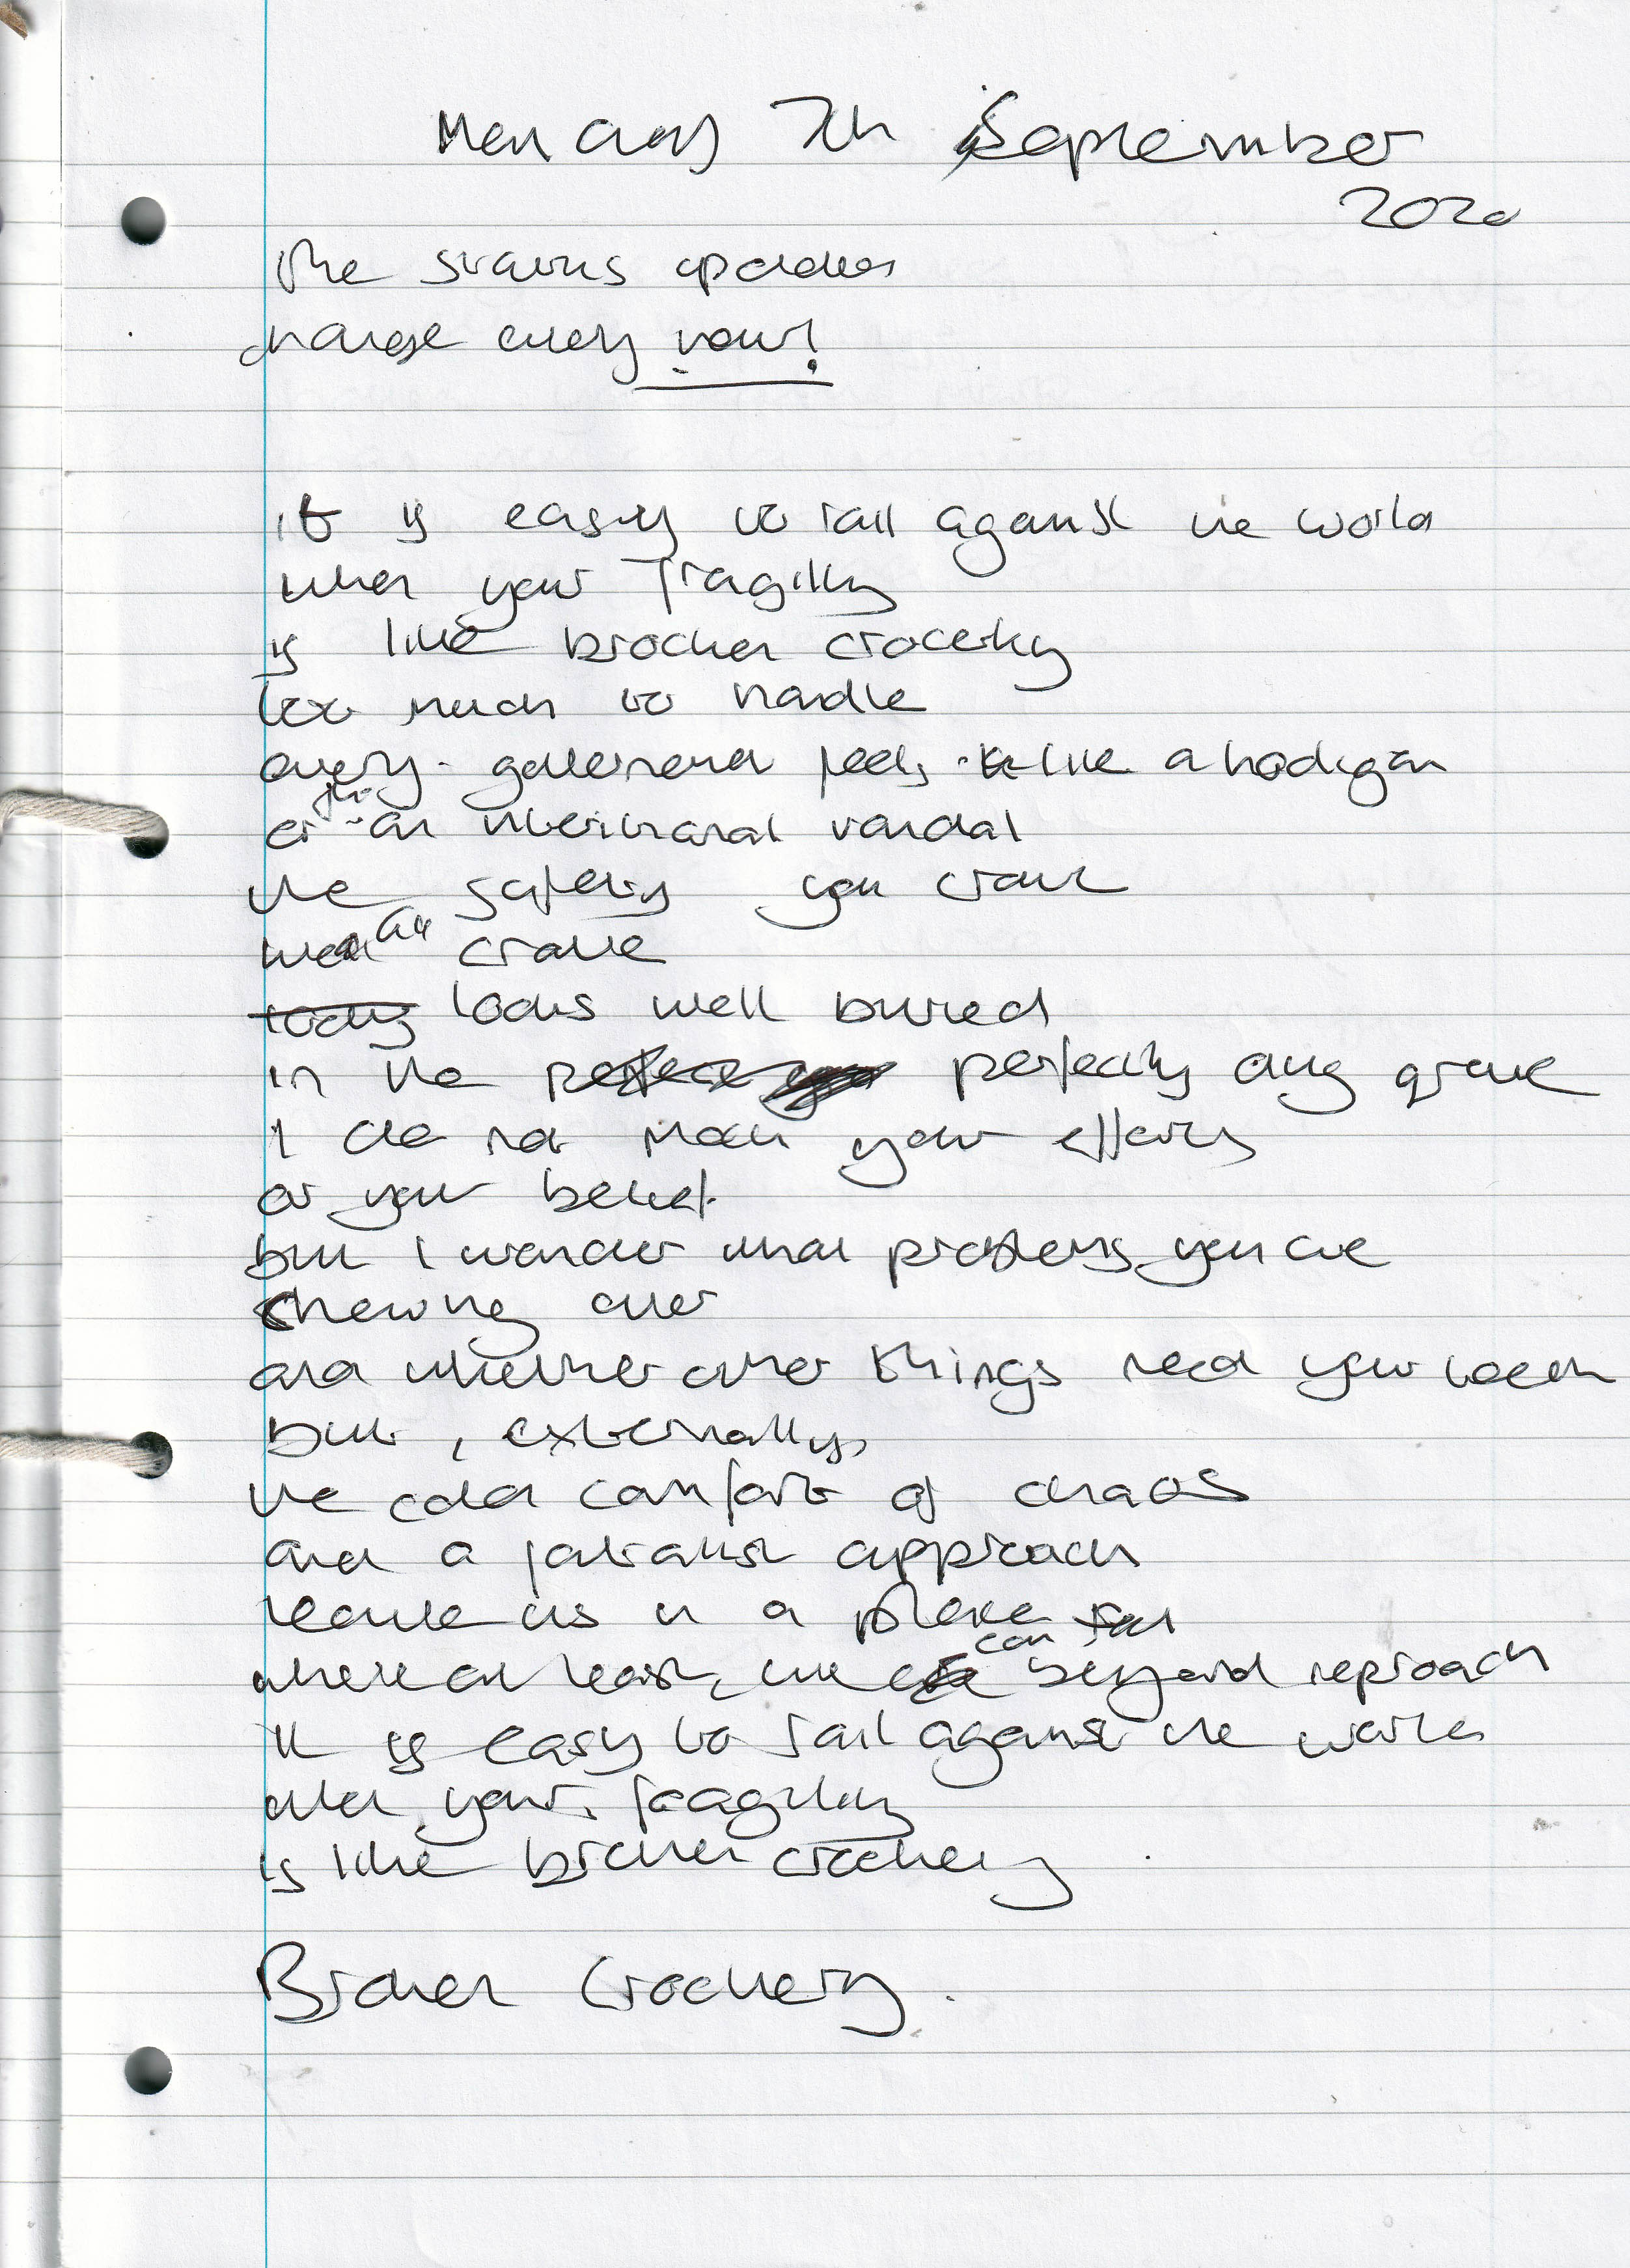 Monday 7th September
2020
The status updates
change every hour!
it is easy to rail against the world
when your fragility
is like brocken crockery
too much to handle
every gatherered feels like a hooligan
or an intentional vandal
the safety you crave
we all crave
today looks well buried
in the perfectly dug grave
I do not mock your efforts
or your belief
but I wonder what problems you are
chewing over
and whether other things need your teeth
but, externally,
the cold comfort of chaos
and a fatalist approach
leave us in a place
where at least, we can beyond reproach
It is easy to rail against the world
when your fragility
is like broken crockery
Broken Crockery.